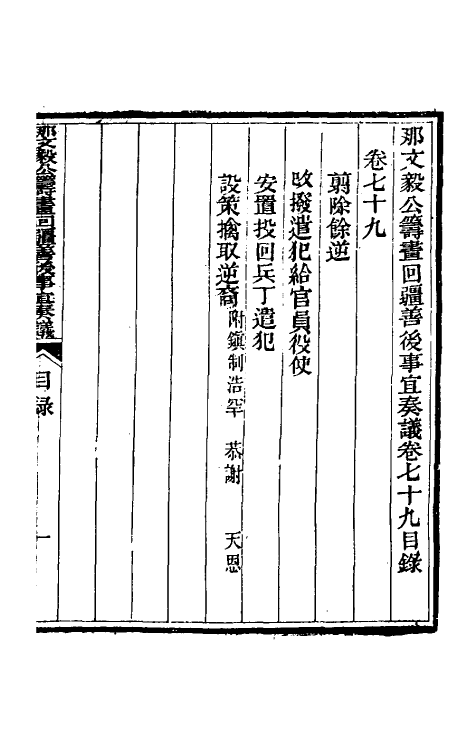 那文毅公籌畫回疆善後事宜奏議卷七十九目錄
卷七十九
翦除餘逆
改撥遣犯給官員役使
安置投回兵丁遣犯
設策擒取逆裔附鎭制浩罕 恭謝 天恩
那文毅公籌畫回疆善後事宜奏議 目錄 一